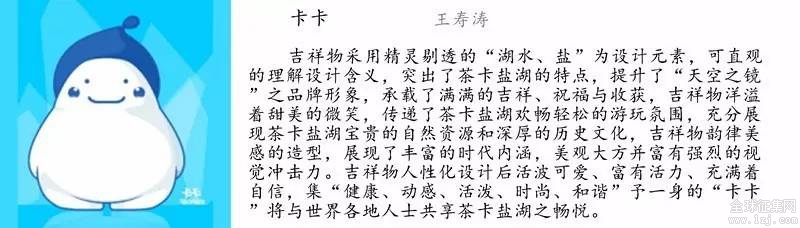 卡卡 王寿涛
吉祥物采用精灵剔透的“湖水、盐”为设计元素，可直观
的理解设计含义，突出了茶卡盐湖的特点，提升了“天空之镜
”之品牌形象，承载了满满的吉祥、祝福与收获，吉祥物洋溢
着甜美的微笑，传递了茶卡盐湖欢畅轻松的游玩氛围，充分展
现茶卡盐湖宝贵的自然资源和深厚的历史文化，吉祥物韵律美
感的造型，展现了丰富的时代内涵，美观大方并富有强烈的视
觉冲击力。吉祥物人性化设计后活泼可爱、富有活力、充满着
自信，集“健康、动感、活泼、时尚、和谐”予一身的“卡卡
”将与世界各地人士共享茶卡盐湖之畅悦。
卡卡
全球征集网
www.1zj.com